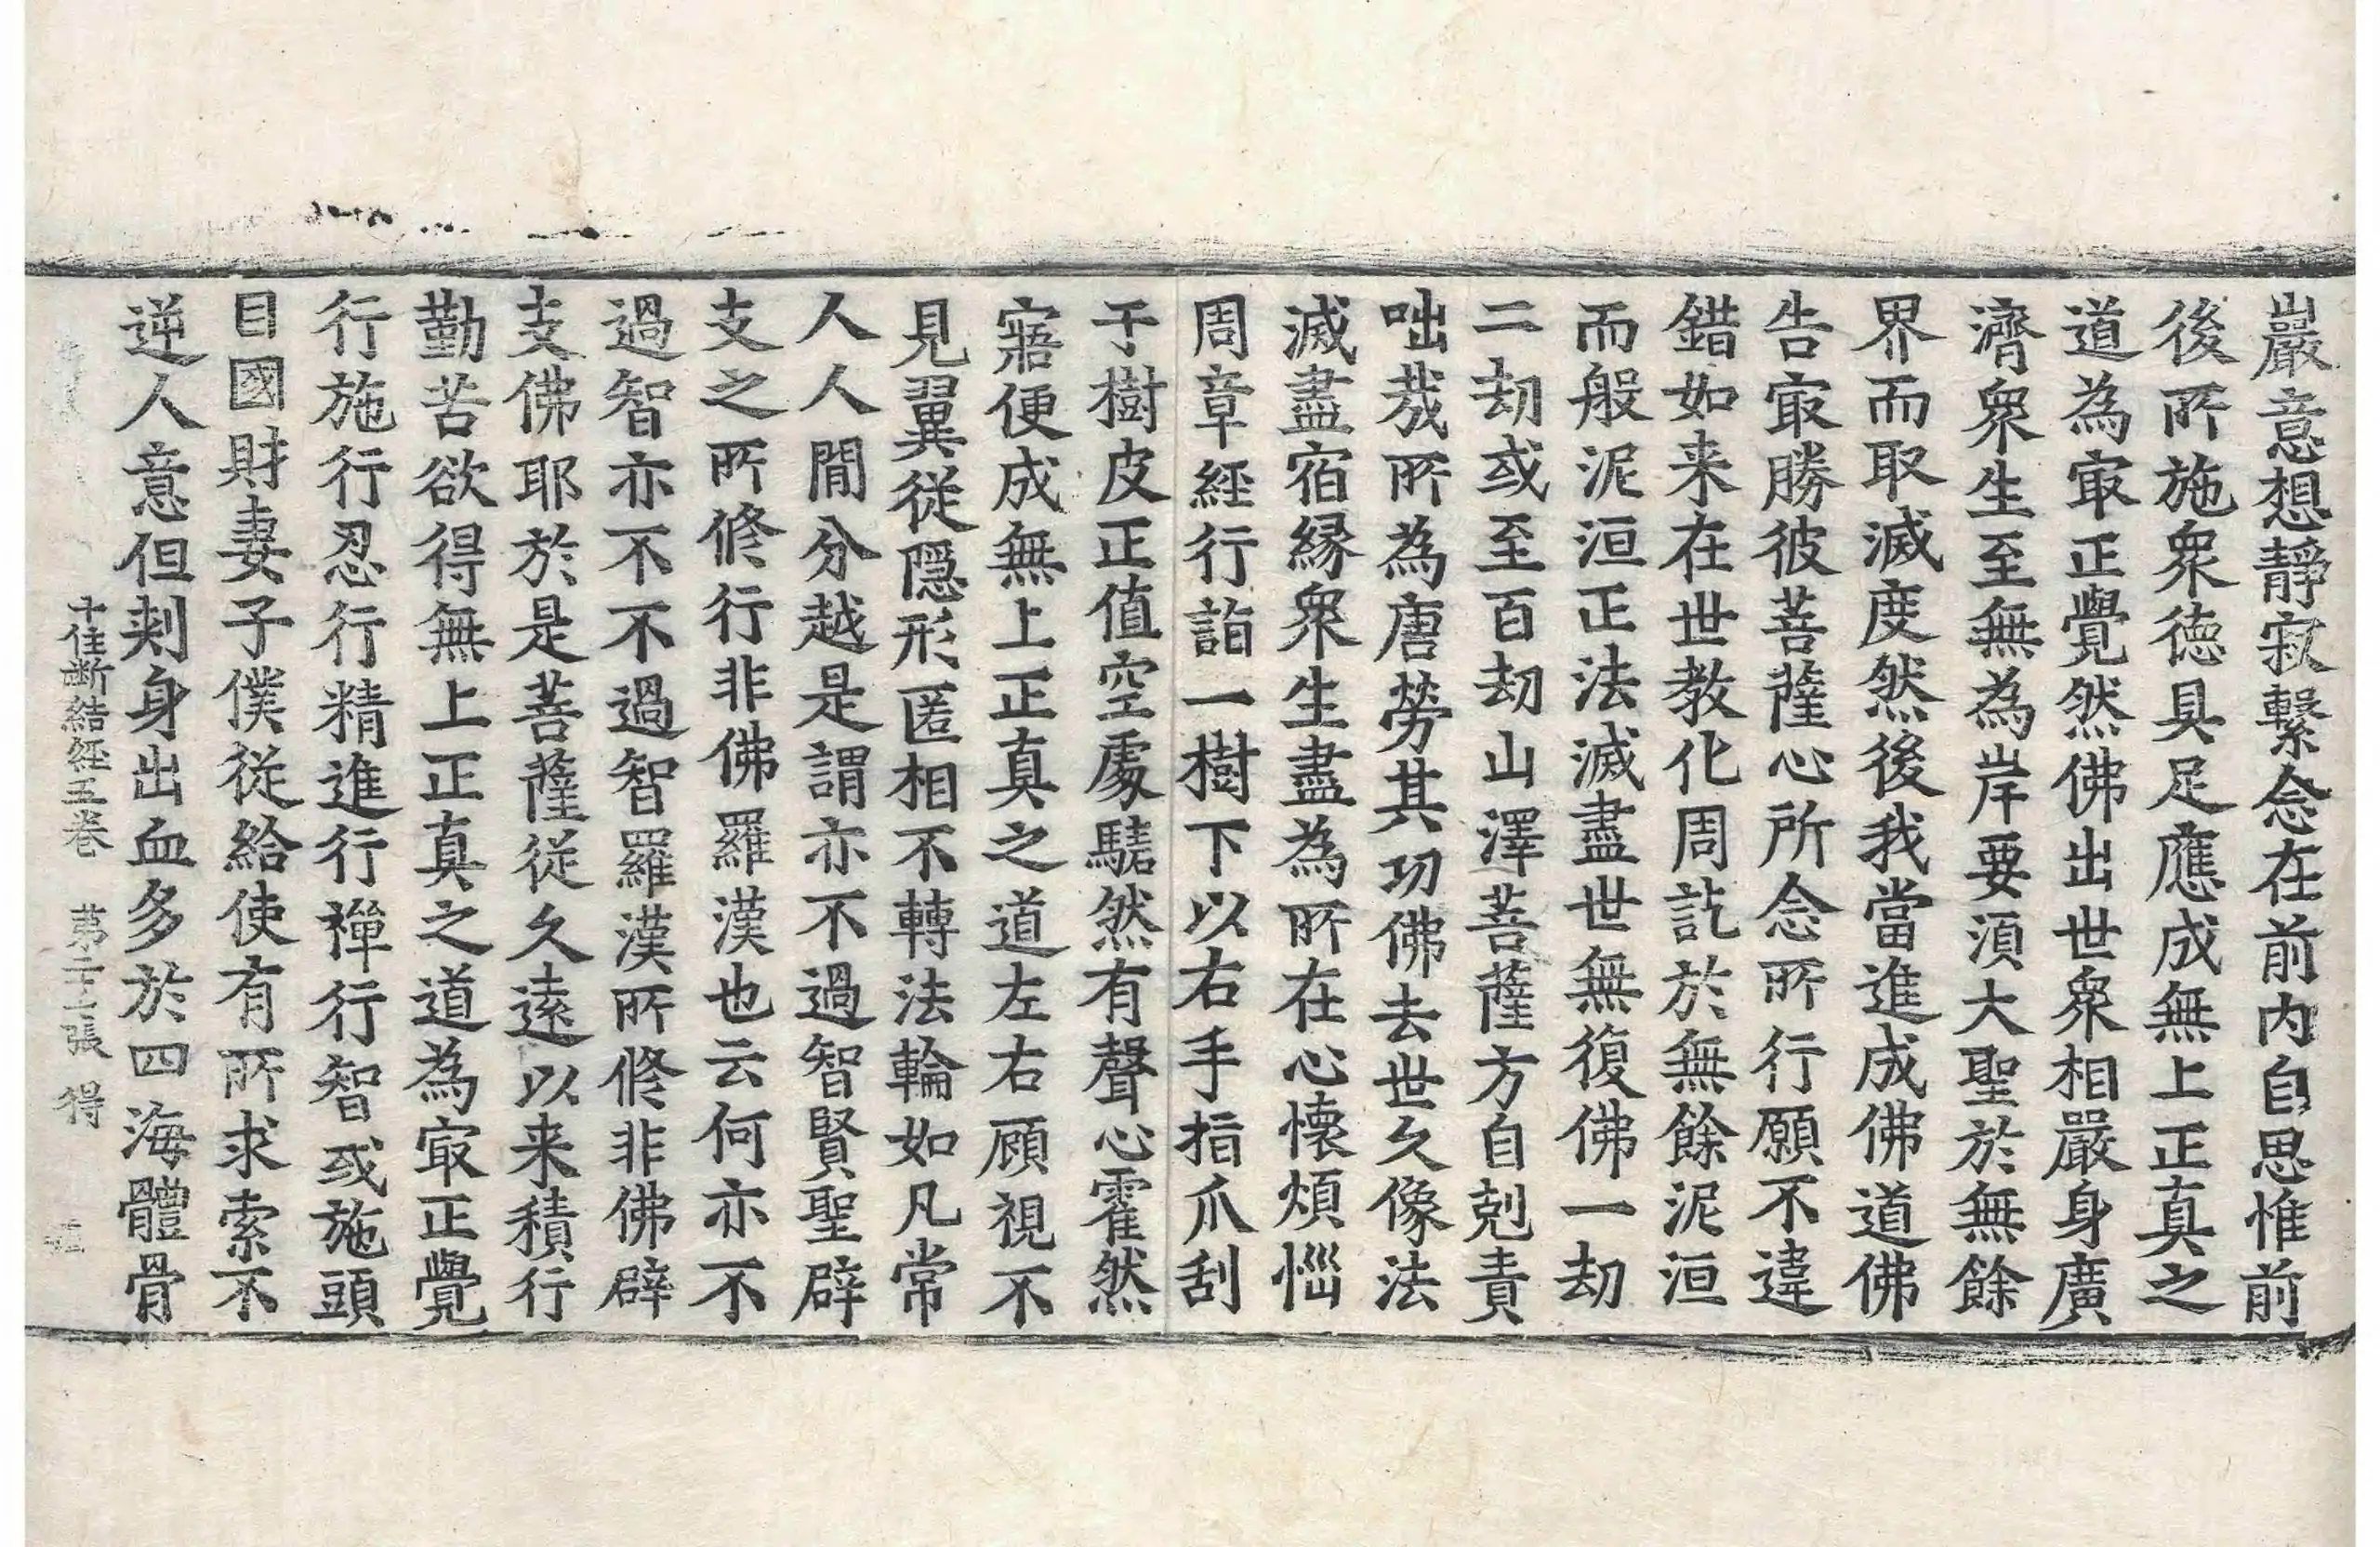 巖意想靜寂繫念在前內自思惟前
後所施衆德具足應成無上正真之
道為㝡正覺然佛出世衆相嚴身廣
濟衆生至無為岸要湏大聖於無餘
界而取滅度然後我當進成佛道佛
告㝡勝彼菩薩心所念所行願不違
錯如来在世教化周訖於無餘泥洹
而般泥洹正法滅盡世無復佛一劫
二劫或至百劫山澤菩薩方自剋責
咄哉所為唐勞其功佛去世久像法
滅盡宿緣衆生盡為所在心懷煩惱
周章經行詣一樹下以右手指爪刮
于樹皮正值空處驁然有聲心霍然
寤便成無上正真之道左右顧視不
見翼從隱形匿相不轉法輪如凡常
人人間分越是謂亦不過智賢聖辟
支之所修行非佛羅漢也云何亦不
過智亦不不過智羅漢所修非佛辟
支佛耶於是菩薩從久遠以来積行
勤苦欲得無上正真之道為㝡正覺
行施行忍行精進行禪行智或施頭
目國財妻子僕從給使有所求索不
逆人意但刾身出血多於四海體骨
十住斷結經五卷 苐二十張 得